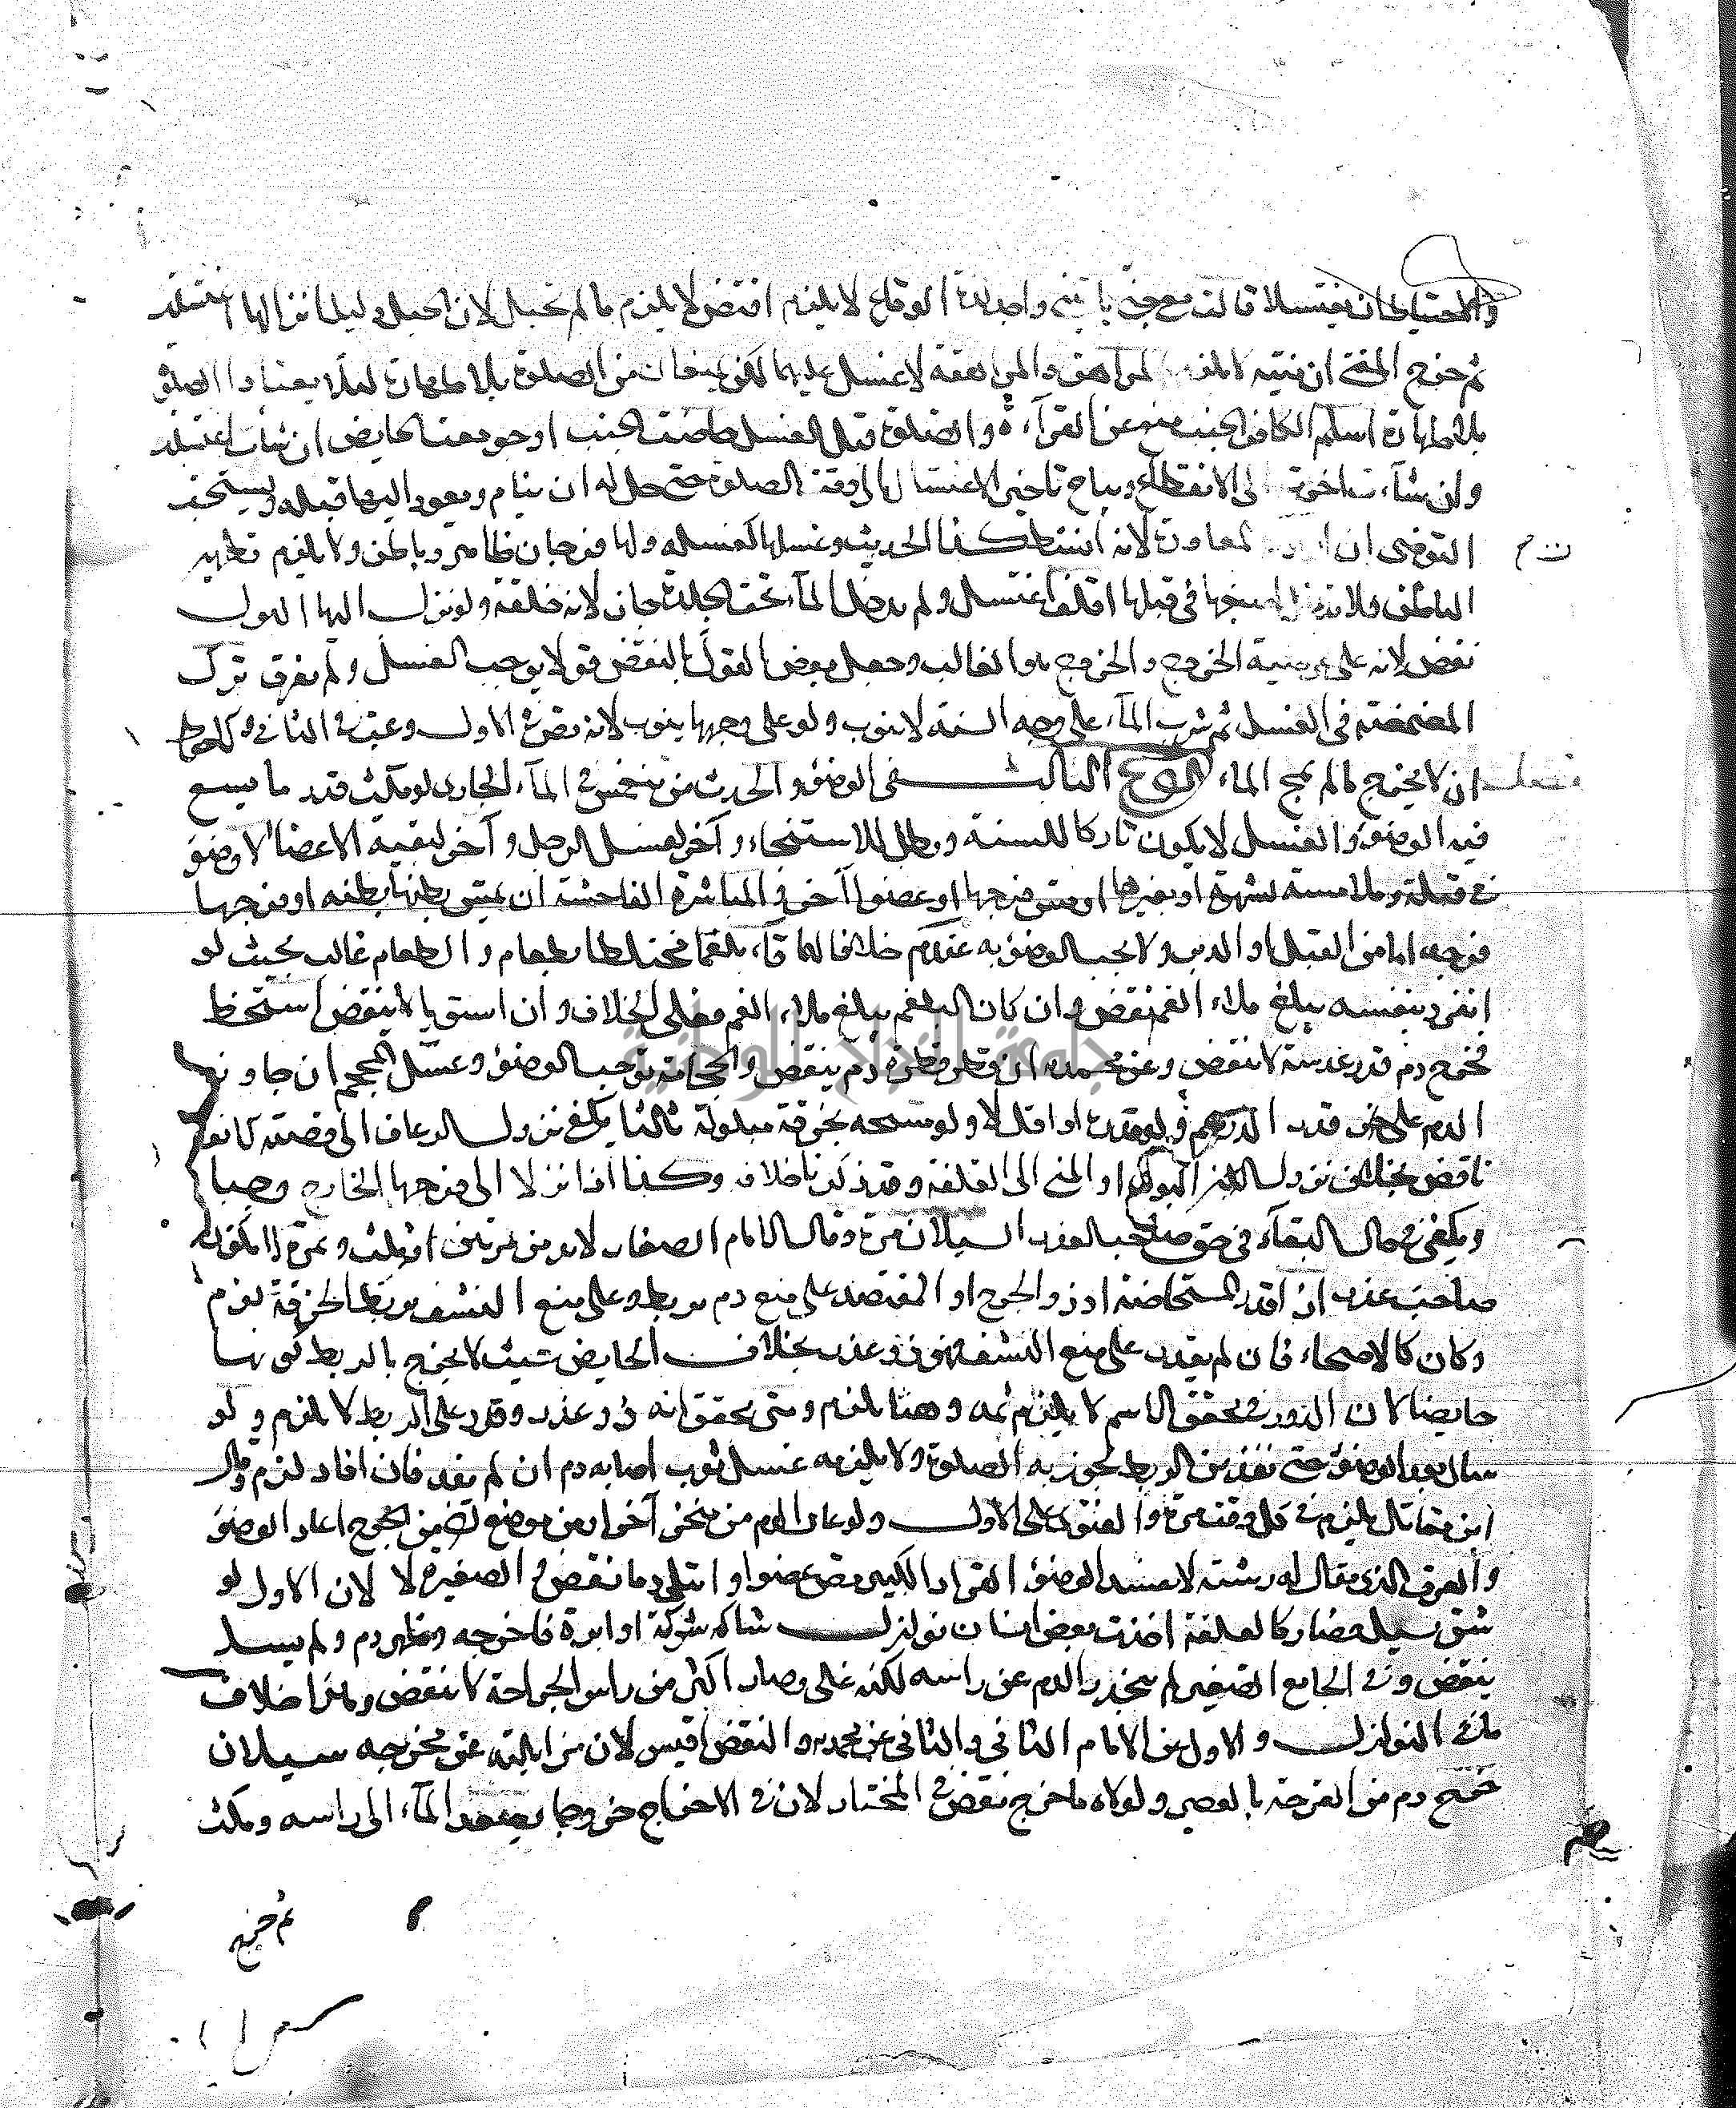 والاحتياط ان يغتسلا قالت معي جني يأتيني واجد لذة الوقاع لا يلزم افتض لا يلزم ما لم تحبل لان الحبل دليل انزالها اغتسلت
ثم خرج المني ان منيه لا يلزم المراهق والمراهقة لا غسل عليهما لكن يمنعان من الصلوة بلا طهارة لئلا يعتادا الصلوة
بلا طهارة اسلم الكافر الجنب منع عن القرآءة والصلوة قبل الغسل حاضت الجنب او جومعت الحايض ان شاءت اغتسلت
وان شاءت اخرت الى الانقطاع ويباح تاخير الاغتسال الى وقت الصلوة حتى حل له ان ينام ويعود اليها قبله ويستحب
التوضى ان اراد المعاودة لانه انشط كذا الحديث وغسلها كغسله ولها فرجان ظاهر وباطن ولا يلزم تطهير
الباطن ولا تدخل اصبعها في قبلها اقلف اغتسل ولم يدخل الماء تحت الجلدة جاز لانه خلقة ولو نزل اليها البول
نقض لانه على عرضية الخروج والخروج هو الغالب وجعل بعض القول بالنقض قولا بوجوب الغسل ولم يفرق ترك
المضمضة في الغسل ثم شرب الماء على وجه السنة لا ينوب ولو على وجهها ينوب لانه مص في الاول وعب في الثاني والاحوط
ان لا يخرج ما لم يمج الماء النوع الثالث في الوضوء والحدث من ينغمس في الماء الجاري لو مكث قدر ما يسع
فيه الوضوء والغسل لا يكون تاركا للسنة ورطل للاستنجاء وآخر لغسل الرجل وآخر لبقية الاعضاء لا وضوء
في قبلة وملامسة لشهوة او بغيرها او مس فرجها او عضوا آخر في المباشرة الفاحشة ان يمس بطنها بطنه او فرجها
فرجه اما من القبل او الدبر ولا يجب الوضوء به عندهم خلافا لهما قاء بلغما مختلطا بطعام والطعام غالب بحيث لو
انفرد بنفسه يبلغ ملاء الفم نقض وان كان البلغم يبلغ ملاء الفم فعلى الخلاف وان استويا لا ينقض استخط
فخرج دم قدر عدسة لا ينقض وعن محمد ان قطر قطرة دم ينقض والحجامة توجب الوضوء وغسل المحجم ان جاوز
الدم على من قدر الدرهم ولو قدره او اقل لا ولو مسحه بخرقة مبلولة ثالثا يكفي نزول الرعاف الى قصبته كانف
ناقض بخلاف نزول البول او المني الى القلفة وقد ذكرنا خلافه وكذا اذا نزلا الى فرجها الخارج وجبا
ويكفي في حال البقاء في حق صاحب العذر السيلان مرة وقال الامام الصفار لا بد من مرتين او ثلث
صاحب عذر ان اقدر المستحاضة او ذو الجرح او المفتصد على منع دم بربط وعلى منع النشف بربط الخرقة لزم
وكان كالاصحاء فان لم يقدر على منع النشف فهو ذو عذر بخلاف الحايض حيث لا يخرج بالربط كونها
حايضا لان الدور في تحقق الاسم لا يلزم ثمه وهنا يلزم ومتى تحقق انه ذو عذر وقدر على الربط لا يلزم ولو
سال بعد الوضوء حتى نفذ من الربط يجوز به الصلوة ولا يلزمه غسل ثوب اصابه دم ان لم يفد فان افاد لزم وقال
ابن مقاتل يلزم في كل وقت مرة والفتوى على الاول ولو عاد الدم من منخر آخر او من موضع آخر من الجرح اعاد الوضوء
والعرق الذي يقال له رشته لا يفسد الوضوء القراد الكبير مص عضوا وامتلى دما نقض وفي الصغيرة لا لان الاول لو
شق يسيل فصار كالعلقة اخذت بعض انسان نوازل شاكه شوكة او ابرة فاخرجه وظهر دم ولم يسل
ينقض وفي الجامع الصغير لم ينحدر الدم عن راسه لكنه على وصار اكثر من راس الجراحة لا ينقض وهذا خلاف
ما في النوازل والاول عن الامام الثاني والثاني عن محمد والنقض اقيس لان مزايلته عن مخرجه سيلان
خرج دم من القرحة بالعصر ولولاه ما خرج نقض في المختار لان في الاخراج خروجا صعد الماء الى راسه ومكث
ثم خرج